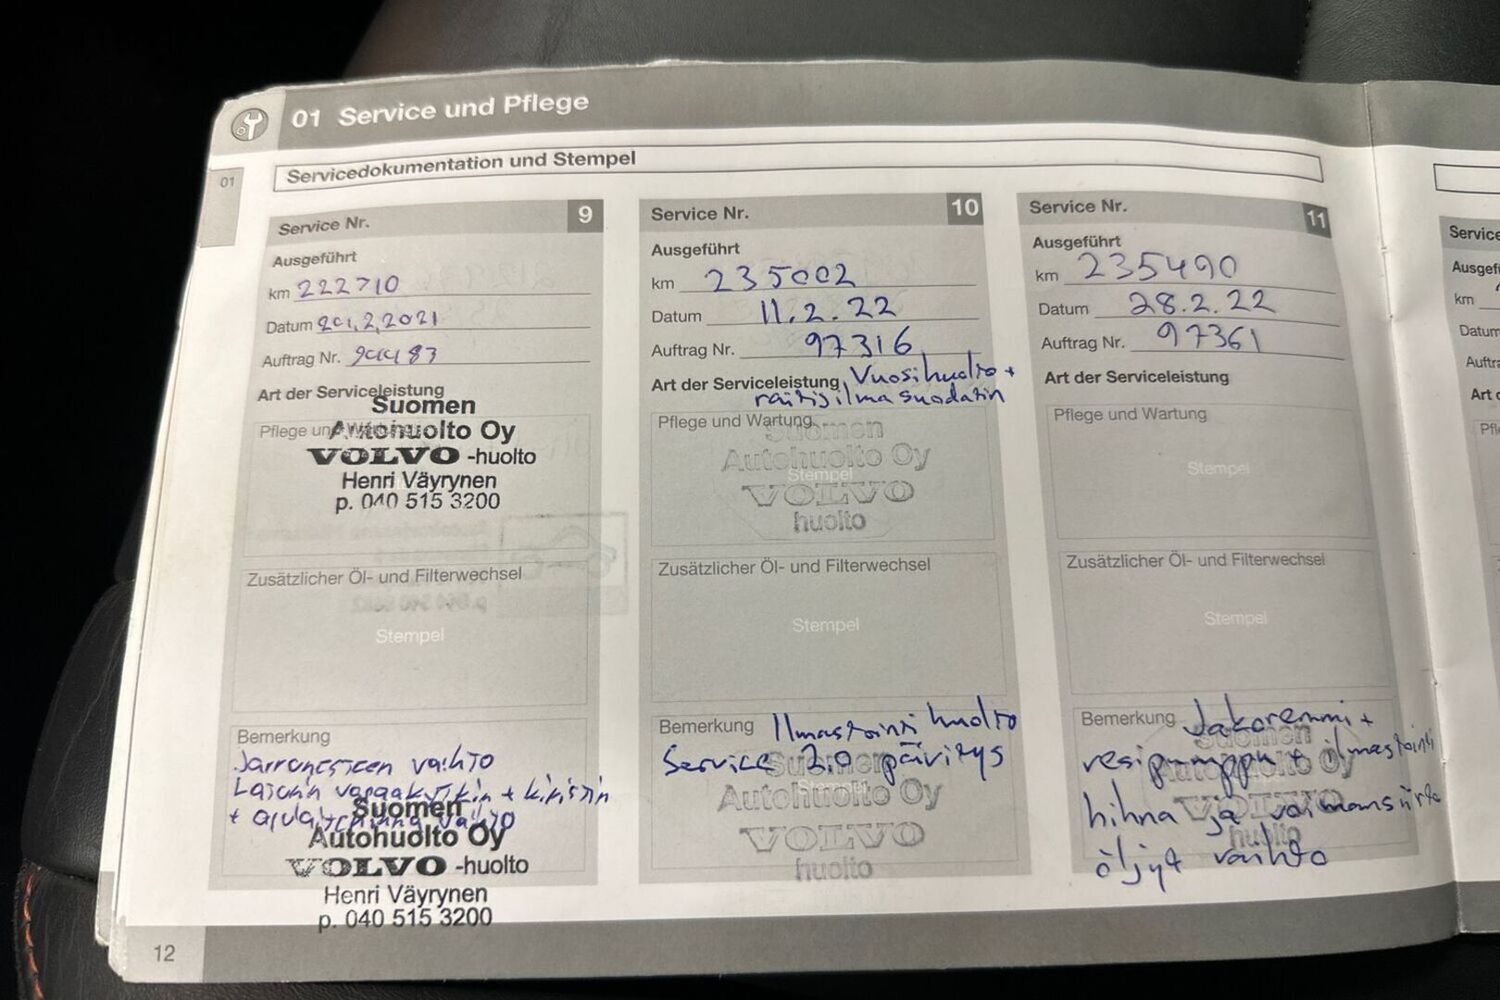 01 Service und Pflege
01
Servicedokumentation und Stempel
Service Nr. 9
Ausgeführt
km 222710
Datum
Auftrag Nr.
Art der Serviceleistung
Pflege und Wartung
Suomen
Autohuolto Oy
VOLVO -huolto
Henri Väyrynen
p. 040 515 3200
Zusätzlicher Öl- und Filterwechsel
Stempel
Bemerkung
Jarrunesteen vaihto
Laturin vapaakytkin + kiristin
+ apulaitehihna vaihto
Suomen
Autohuolto Oy
VOLVO -huolto
Henri Väyrynen
p. 040 515 3200
Service Nr. 10
Ausgeführt
km 235002
Datum 11.2.22
Auftrag Nr. 97316
Art der Serviceleistung Vuosihuolto +
raitisilmasuodatin
Pflege und Wartung
Suomen
Autohuolto Oy
Stempel
VOLVO
huolto
Zusätzlicher Öl- und Filterwechsel
Stempel
Bemerkung Ilmastointi huolto
Service 2.0 päivitys
Suomen
Autohuolto Oy
VOLVO
huolto
Service Nr. 11
Ausgeführt
km 235490
Datum 28.2.22
Auftrag Nr. 97361
Art der Serviceleistung
Pflege und Wartung
Stempel
Zusätzlicher Öl- und Filterwechsel
Stempel
Bemerkung Jakoremmi +
vesipumppu + ilmastointi
hihna ja voimansiirto
öljyt vaihto
Suomen
Autohuolto Oy
VOLVO
huolto
12
Service
Ausgef
km
Datum
Auftra
Art d
Pfl